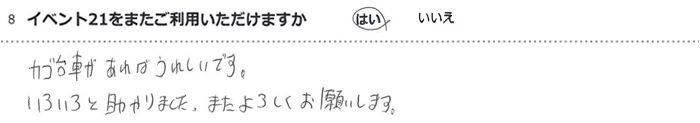 8 イベント21をまたご利用いただけますか はい いいえ
カゴ台車が あれば うれしいです。
いろいろと 助かりました。またよろしく お願いします。